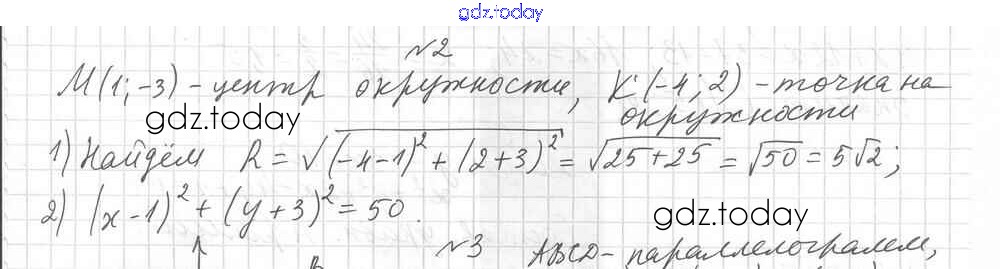 gdz.today
№2
M(1; -3) - центр окружности, K(-4; 2) - точка на
окружности
gdz.today
1) Найдём R = √((-4-1)² + (2+3)²) = √(25+25) = √50 = 5√2;
2) (x-1)² + (y+3)² = 50.
gdz.today
№3 ABCD - параллелограмм,